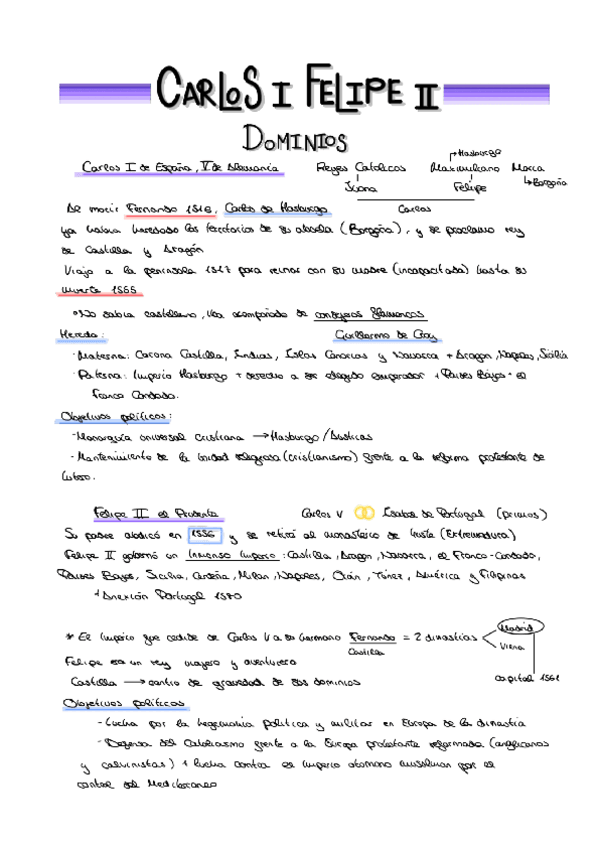 CARLOS I FELIPE II
DOMINIOS
Carlos I de España, V de Alemania Reyes Catolicos Maximiliano → Hasburgo María → Borgoña
Juana Felipe
Carlos
Al morir Fernando 1516, Carlos de Hasburgo
ya había heredado los territorios de su abuela (Borgoña), y se proclamo rey
de Castilla y Aragón
Viajo a la peninsula 1517 para reinar con su madre (incapacitada) hasta su
muerte 1555
No sabia castellano, iba acompañado de consejeros flamencos
Hereda: Guillermo de Croy
-Materna: Corona Castilla, Indias, Islas Canarias y Navarra + Aragon, Napoles, Sicilia
-Paterna: Imperio Hasburgo + derecho a ser elegido emperador + Paises Bajos + el
Franco Condado.
Objetivos políticos:
-Monarquía universal cristiana → Hasburgo /Austrias
-Mantenimiento de la unidad religiosa (cristianismo) frente a la reforma protestante de
Lutero.
Felipe II el Prudente Carlos V Isabel de Portugal (primos)
Su padre abdicó en 1556 y se retiró al monasterio de Yuste (Extremadura)
Felipe II gobernó un Inmenso Imperio: Castilla, Aragon, Navarra, el Franco-Condado,
Paises Bajos, Sicilia, Cerdeña, Milan, Napoles, Orán, Túnez, América y Filipinas
+ Anexión Portugal 1580
* El Imperio que cedide de Carlos V a su hermano Fernando = 2 dinastías Madrid
Castilla Viena
Felipe era un rey viajero y aventurero
Castilla → centro de gravedad de sus dominios capital 1561
Objetivos políticos
-Lucha por la hegemonia politica y militar en Europa de la dinastía
-Defensa del Catolicismo frente a la Europa protestante reformada (anglicanos
y calvinistas) + lucha contra el imperio otomano musulman por el
control del Mediterraneo